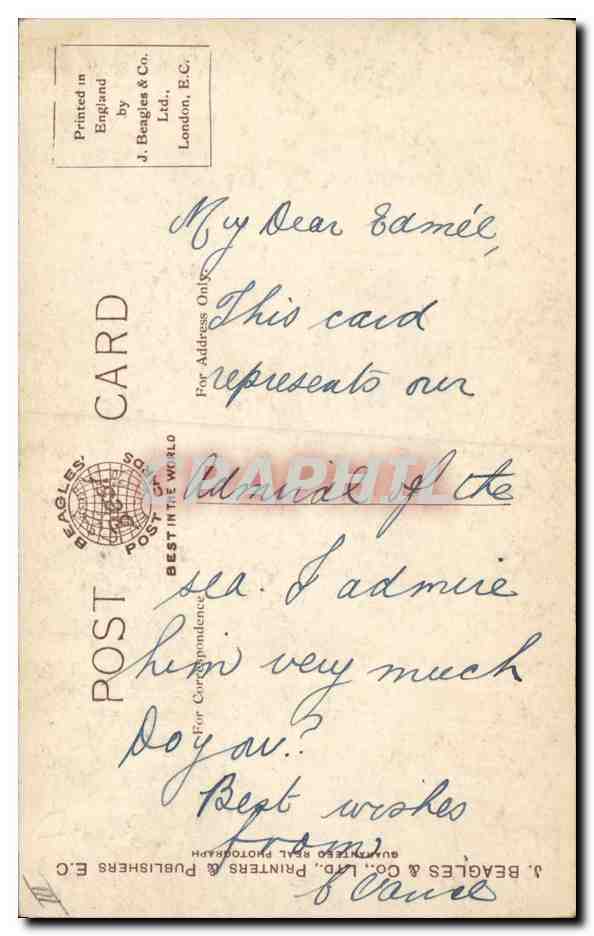 Printed in
England
by
J. Beagles & Co.
Ltd.,
London, E.C.
POST CARD
BEAGLES'
POST CARDS
BEST IN THE WORLD
For Address Only.
For Correspondence
My Dear Edmée,
This card
represents our
Admiral of the
sea. I admire
him very much
Do you?
Best wishes
from
J. BEAGLES & CO., LTD., PRINTERS & PUBLISHERS E.C
GUARANTEED REAL PHOTOGRAPH
CPAPHIL